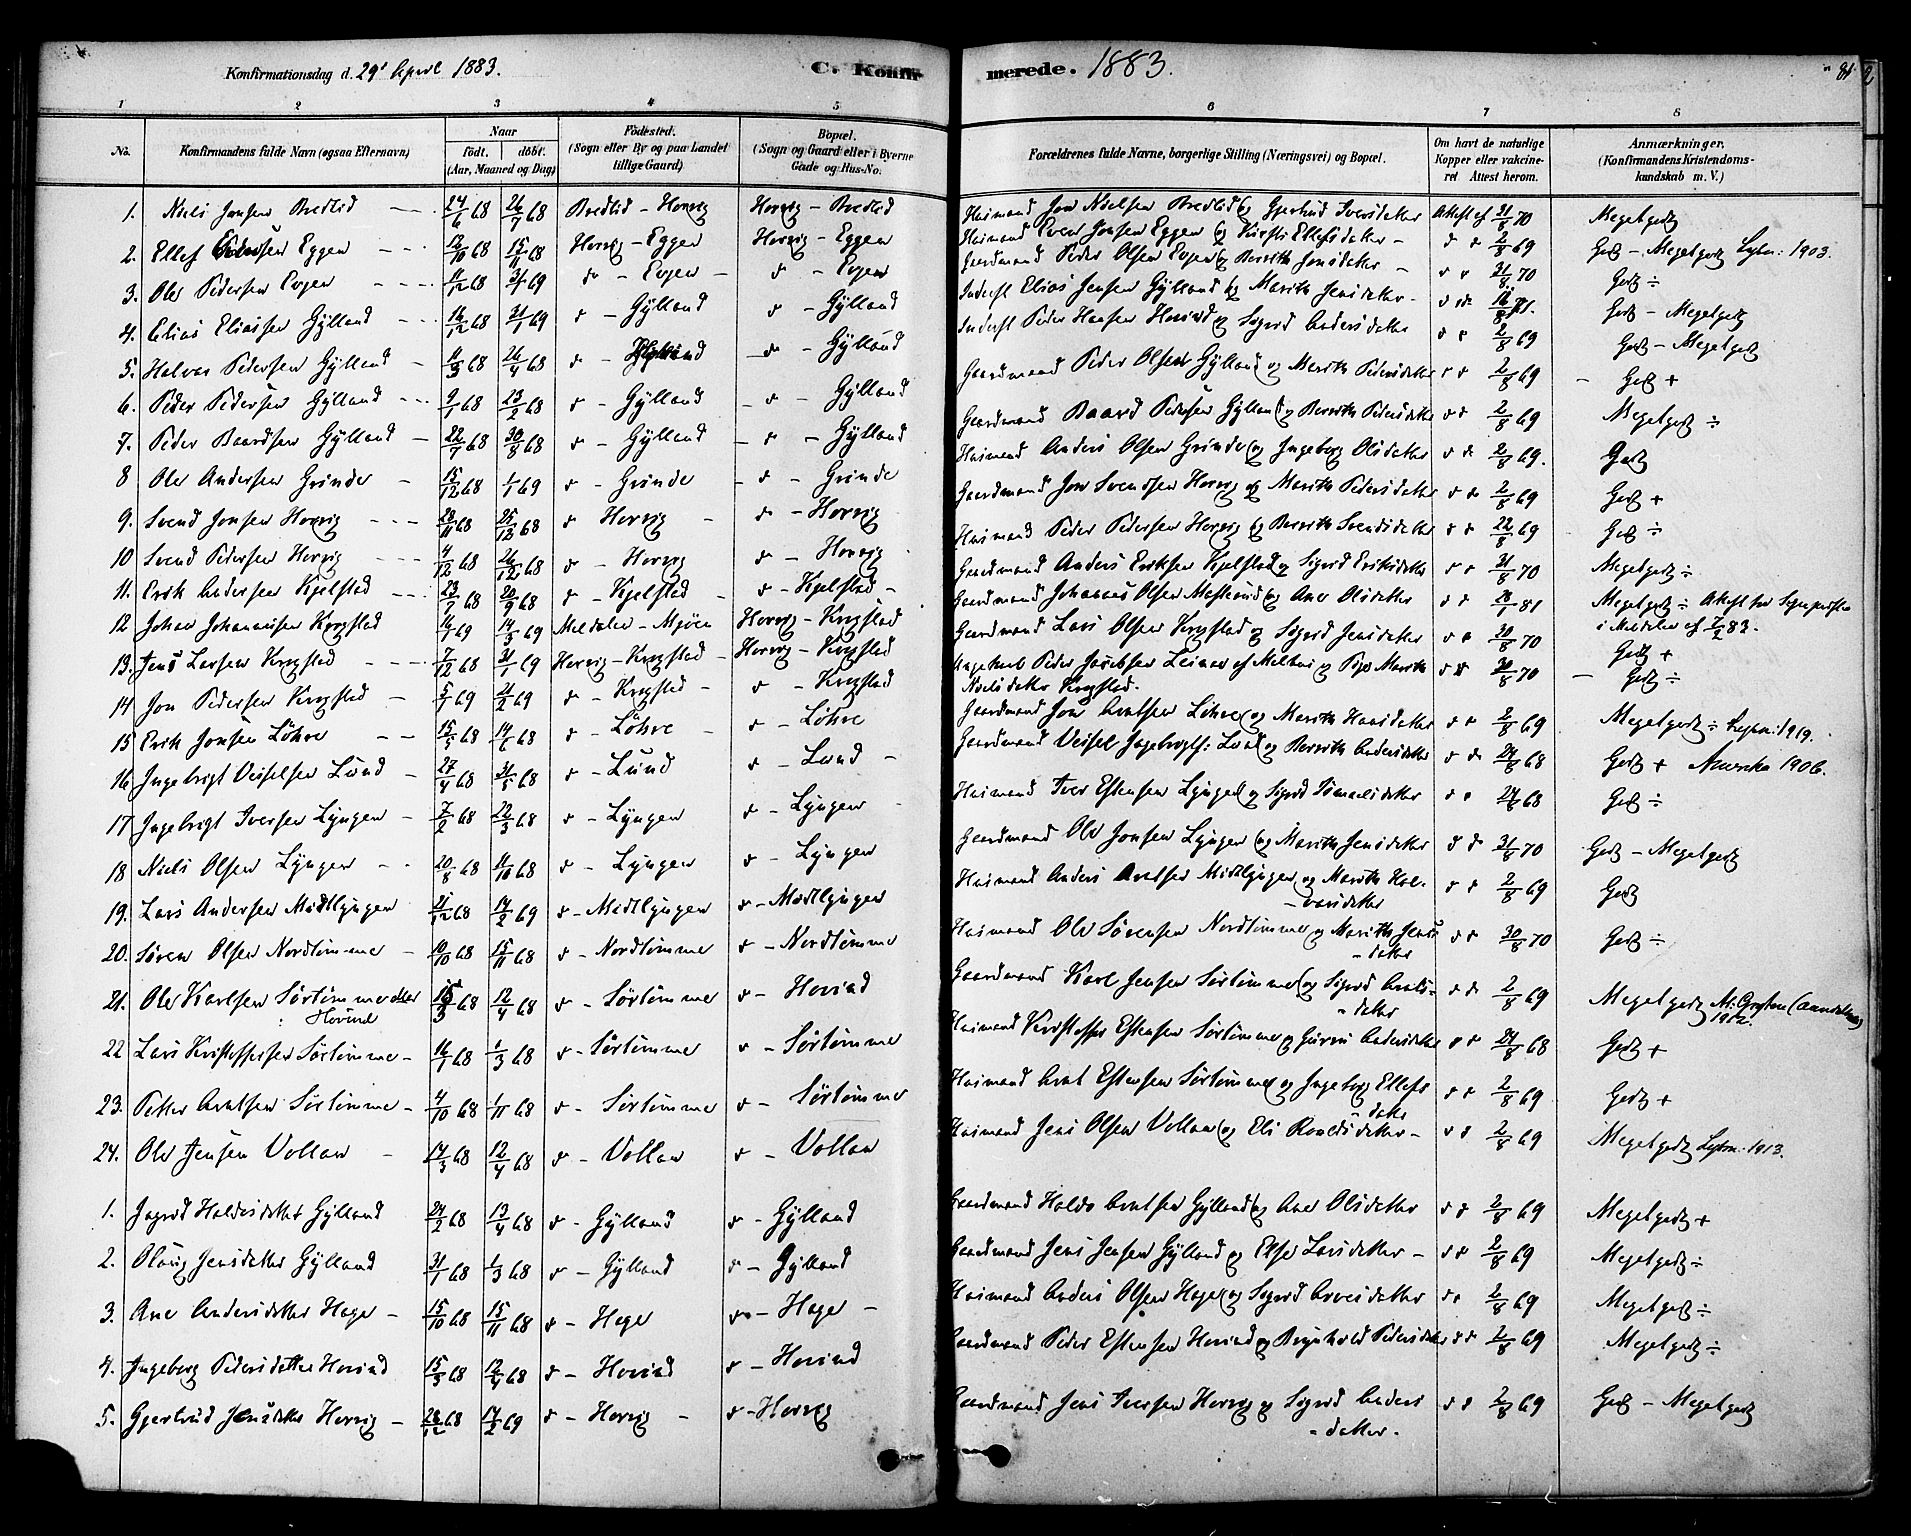 Konfirmationsdag d. 29' April 1883. C. Konfir- merede. 1883. 81
1 2 3 4 5 6 7 8
No. Konfirmandens fulde Navn (ogsaa Efternavn) Naar født. døbt. (Aar, Maaned og Dag) Fødested. (Sogn eller By og paa Landet tillige Gaard) Bopæl. (Sogn og Gaard eller i Byerne Gade og Hus-No. Forældrenes fulde Navne, borgerlige Stilling (Næringsvei) og Bopæl. Om havt de naturlige Kopper eller vakcineret Attest herom. Anmærkninger. (Konfirmandens Kristendomskundskab m. V.)
1. Niels Jonsen Bredlid 24/6 68 26/7 68 Bredlid - Horrig Horrig - Bredlid Husmand Jon Nielsen Bredlid og Gjertrud Iversdatter Attest af 31/8 70 Megetgodt
2. Ellef Evensen Eggen 12/10 68 15/11 68 Horrig - Eggen Horrig - Eggen Husmand Even Jonsen Eggen og Kirsti Ellefsdatter - d d 2/8 69 Godt - Megetgodt 1903.
3. Ole Pedersen Evjen 11/12 68 31/1 69 d - Evjen d - Evjen Gaardmand Peder Olsen Evjen og Berith Jonsdatter - d d 31/8 70 Godt ÷
4. Elias Eliassen Gylland 16/12 68 31/1 69 d - Gylland d - Gylland Inderst Elias Jensen Gylland og Marith Jensdatter - d d 71. Godt - Megetgodt
5. Halvor Pedersen Gylland 11/3 68 26/4 68 d - Gylland d - Gylland Inderst Peder Hansen Hovind og Sigrid Andersdatter d d 2/8 69 Godt - Megetgodt
6. Peder Pedersen Gylland 9/1 68 23/2 68 d - Gylland d - Gylland Gaardmand Peder Olsen Gylland og Marith Pedersdatter d d 2/8 69 - Godt +
7. Peder Baardsen Gylland 22/7 68 30/8 68 d - Gylland d - Gylland Gaardmand Baard Pedersen Gylland og Berith Pedersdatter d d 2/8 69 Megetgodt ÷
8 Ole Andersen Grinde 15/12 68 1/1 69 d - Grinde d - Grinde Husmand Anders Olsen Grinde og Ingeborg Olsdatter d d 2/8 69. Godt
9. Svend Jonsen Horrig 28/11 68 25/12 68 d Horrig d - Horrig Gaardmand Jon Svendsen Horrig og Marith Pedersdatter d d 2/8 69 Godt +
10 Svend Pedersen Horrig 4/12 68 26/12 68 d - Horrig d - Horrig Husmand Peder Pedersen Horrig og Berith Svendsdatter d d 22/8 69 Godt ÷
11. Erik Andersen Kjelstad 23/7 68 20/9 68 d - Kjelstad d - Kjelstad Gaardmand Anders Eriksen Kjelstad og Sigrid Eriksdatter d d 31/8 70 Megetgodt ÷
12 Johan Johannesen Krogstad 16/1 69 14/3 69 Meldalen - Mjøen Horrig - Krogstad Gaardmand Johannes Olsen og Ane Olsdatter d d 81 Megetgodt ÷ Attest fra Sognepresten
i Meldalen af 7/2 83.
13. Jens Larsen Krogstad 7/12 68 31/1 69 Horrig - Krogstad Horrig - Krogstad Gaardmand Lars Olsen Krogstad og Sigrid Jensdatter d d 30/8 70 Godt +
14 Jon Pedersen Krogstad 5/1 69 21/2 69 d - Krogstad d - Krogstad Ungekarl Peder Jacobsen af Melhus og Pige Marith d d 30/8 70 - Godt ÷
Nielsdatter Krogstad.
15 Erik Jonsen Løhre 15/5 68 14/6 68 d - Løhre d - Løhre Gaardmand Jon Arntsen Løhre og Marith Hansdatter d d 2/8 69 Megetgodt ÷ 1919.
16 Ingebrigt Veiselsen Lund 27/4 68 31/5 68 d - Lund d - Lund Gaardmand Veisel Ingebrigts: Lund og Berith Andersdatter d d 24/8 68 Godt + Amerika 1906.
17 Ingebrigt Iversen Lyngen 7/2 68 22/3 68 d - Lyngen d - Lyngen Husmand Iver Estensen Lyngen og Sigrid d d 24/8 68 Godt ÷
18 Niels Olsen Lyngen 20/8 68 11/10 68 d - Lyngen d - Lyngen Gaardmand Ole Jonsen Lyngen og Marith Jensdatter d d 31/8 70 Godt - Megetgodt
19. Lars Andersen Midtlyngen 21/12 68 14/2 69 d - Midtlyngen d - Midtlyngen Husmand Anders Arntsen Midtlyngen og Marith Hal- d d 2/8 69 Godt
- vorsdatter
20. Søren Olsen Nordtømme 10/10 68 15/11 68 d - Nordtømme d - Nordtømme Husmand Ole Sørensen Nordtømme og Marith Jens- d d 30/8 70 Godt ÷
- datter
21. Ole Karlsen Sørtømme eller 68 12/4 68 d - Sørtømme d - Hovind Gaardmand Karl Jensen Sørtømme og Sigrid Arnts- d d 2/8 69 Megetgodt
Hovind - datter 1912.
22 Lars Kristoffersen Sørtømme 16/1 68 1/3 68 d - Sørtømme d - Sørtømme Husmand Kristoffer Estensen Sørtømme og Guruni Andersdatter d d 24/8 68 Godt +
23. Petter Arntsen Sørtømme 4/10 68 1/11 68 d - Sørtømme d - Sørtømme Husmand Arnt Estensen Sørtømme og Ingeborg Ellefs d d 2/8 69 Godt +
- datter
24. Ole Jensen Vollan 14/3 68 12/4 68 d - Vollan d - Vollan Husmand Jens Olsen Vollan og Eli Roaldsdatter - d d 2/8 69 Megetgodt 1913.
1. Ingrid Haldosdatter Gylland 24/2 68 13/4 68 d - Gylland d - Gylland Gaardmand Haldo Arntsen Gylland og Ane Olsdatter d d 2/8 69 Megetgodt +
2. Olaug Jensdatter Gylland 31/1 68 1/3 68 d - Gylland d - Gylland Gaardmand Jens Jensen Gylland og Else Larsdatter - d d 2/8 69 Megetgodt ÷
3. Ane Andersdatter Hage 15/10 68 15/11 68 d - Hage d - Hage Husmand Anders Olsen Hage og Sigrid Arnesdatter d d 2/8 69 Megetgodt ÷
4. Ingeborg Pedersdatter Hovind 15/3 68 12/4 68 d - Hovind d - Hovind Gaardmand Peder Estensen Hovind og Brynhild Pedersdatter d d 2/8 69 Megetgodt ÷
5. Gjertrud Jensdatter Horrig 28/12 68 14/2 69 d - Horrig d - Horrig Gaardmand Jens Iversen Horrig og Sigrid Anders d d 2/8 69 Godt - Megetgodt
- datter.